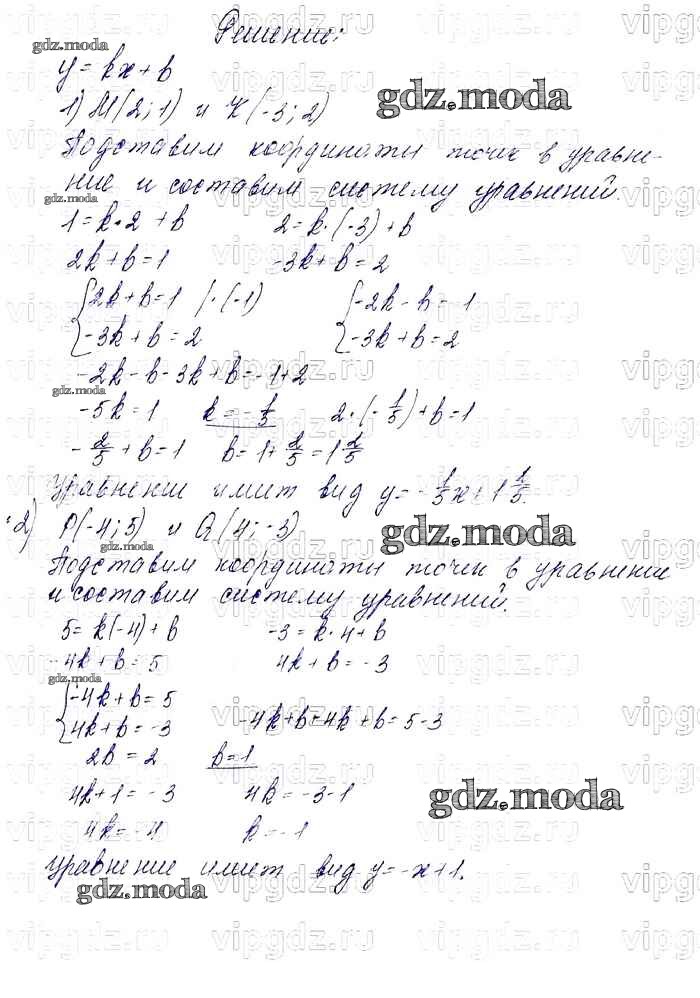 Решение:
gdz.moda
y = kx + b
1) M(2; 1) и K(-3; 2)
gdz.moda
Подставим координаты точек в уравне-
ние и составим систему уравнений.
gdz.moda
1 = k · 2 + b 2 = k · (-3) + b
2k + b = 1 -3k + b = 2
{2k + b = 1 | · (-1) {-2k - b = -1
{-3k + b = 2 {-3k + b = 2
-2k - b - 3k + b = -1 + 2
gdz.moda
-5k = 1 k = -1/5 2 · (-1/5) + b = 1
-2/5 + b = 1 b = 1 + 2/5 = 1 2/5
Уравнение имеет вид y = -1/5 x + 1 1/5.
2) P(-4; 5) и Q(4; -3)
gdz.moda
gdz.moda
Подставим координаты точек в уравнение
и составим систему уравнений.
5 = k(-4) + b -3 = k · 4 + b
-4k + b = 5 4k + b = -3
gdz.moda
{-4k + b = 5
{4k + b = -3 -4k + b + 4k + b = 5 - 3
2b = 2 b = 1
4k + 1 = -3 4k = -3 - 1
gdz.moda
4k = -4 k = -1
Уравнение имеет вид y = -x + 1.
gdz.moda
vipgdz.ru